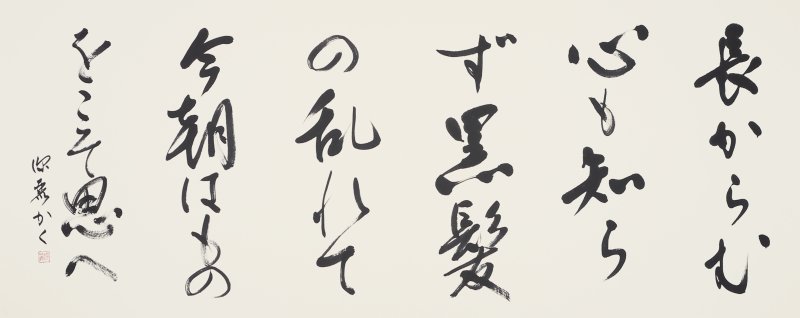 長からむ
心も知ら
ず黒髪
の乱れて
今朝はもの
をこそ思へ
かく